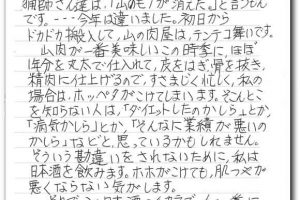 猟師さん達は「山のモノが消えた。」と言うもん
です。･･･今年は違いました。初日から
ドカドカ搬入して、山の肉屋は、テンテコ舞いです。
山肉が一番美味しいこの時季に、ほぼ
1年分を丸太で仕入れて、皮をはぎ骨を抜き、
精肉に仕上げるので、すさまじく忙しく、私の
場合は、ホッペタがこけてしまいます。そんとこ
を知らない人は、「ダイエットしたのかしら」とか、
「病気かしら」とか、「そんなに業績が悪いの
かしら」などと、思っているかもしれません。
そういう勘違いをされないために、私は
日本酒を飲みます。ホホがこけても、肌つやが
悪くならない気がします。